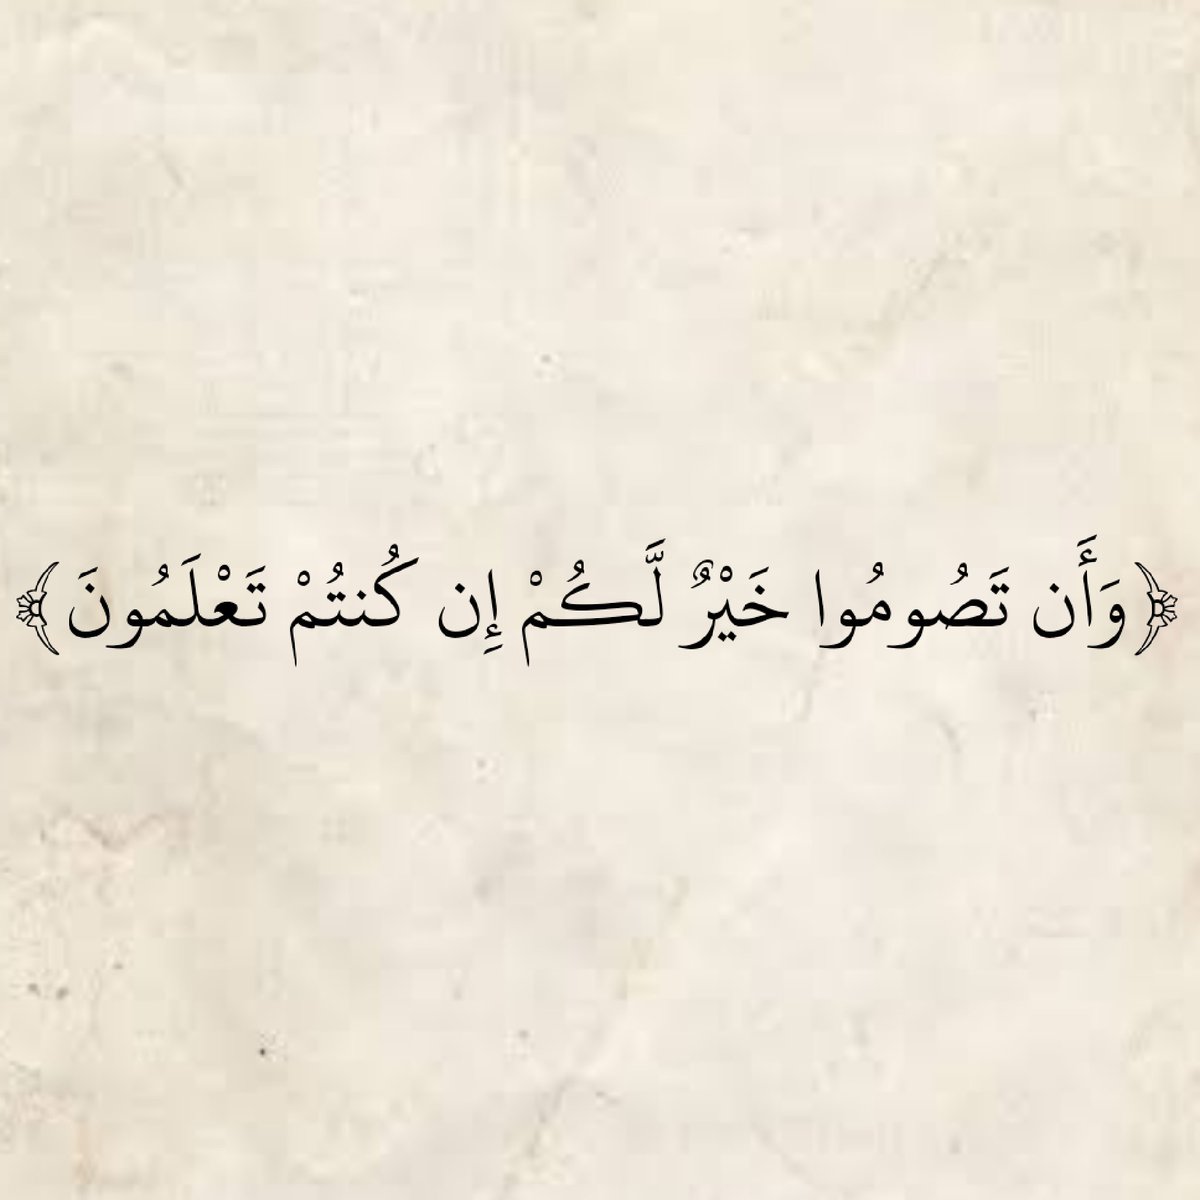 ﴿وَأَن تَصُومُوا خَيْرٌ لَّكُمْ إِن كُنتُمْ تَعْلَمُونَ﴾